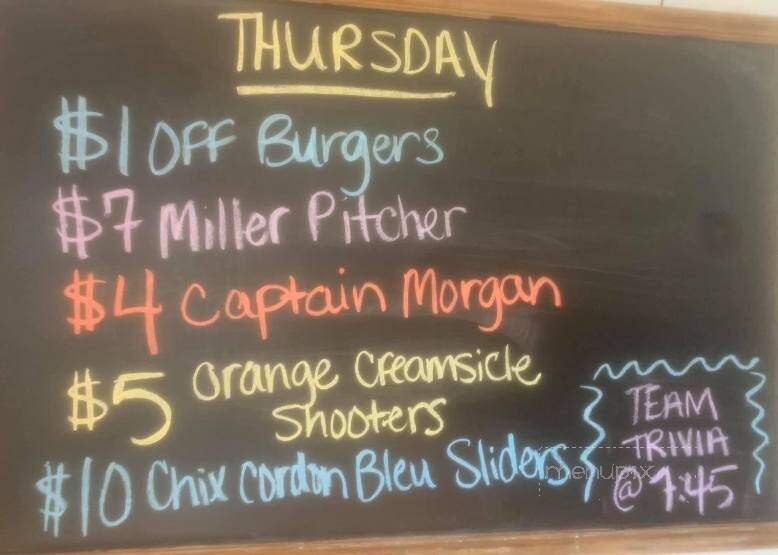 THURSDAY
$1 OFF Burgers
$7 Miller Pitcher
$4 Captain Morgan
$5 Orange Creamsicle
Shooters
$10 Chix Cordon Bleu Sliders
TEAM
TRIVIA
@ 7:45
menupix